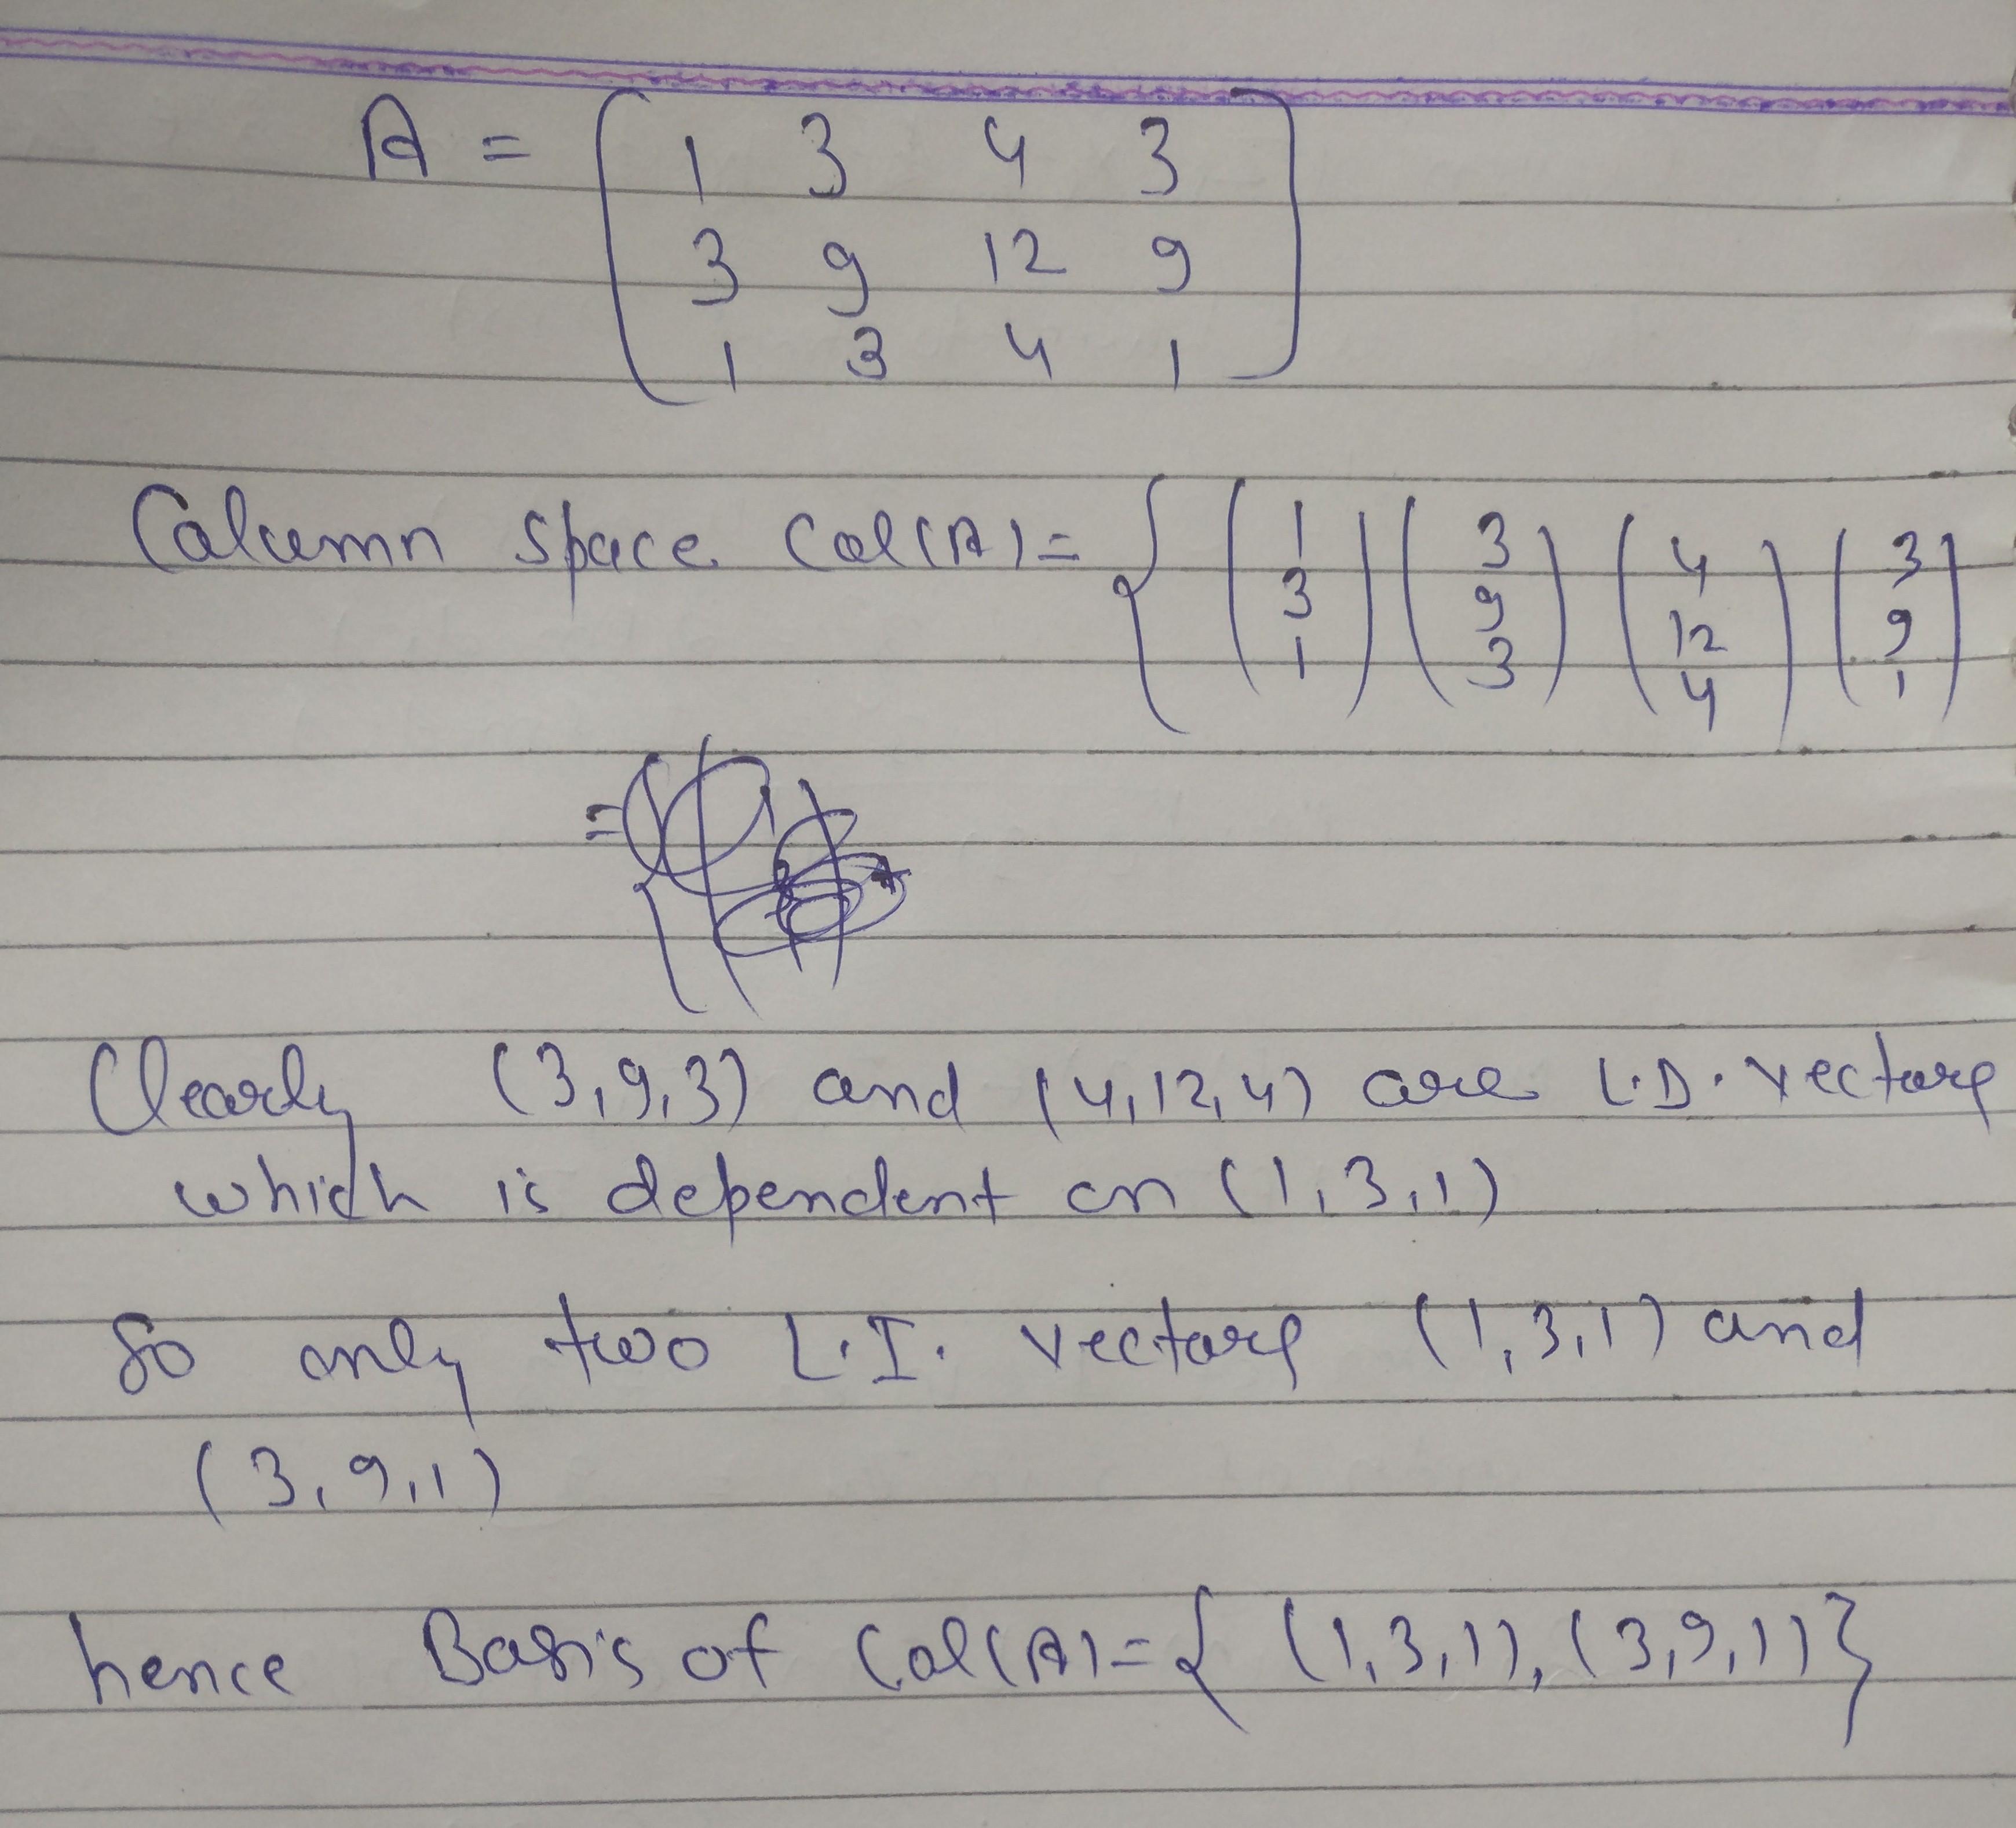 A = [ 1 3 4 3
3 9 12 9
1 3 4 1 ]
Column space Col(A) = { (1 3 1) (3 9 3) (4 12 4) (3 9 1)
=
Clearly (3,9,3) and (4,12,4) are L.D. vectors
which is dependent on (1,3,1)
So only two L.I. vectors (1,3,1) and
(3,9,1)
hence Basis of Col(A) = { (1,3,1), (3,9,1) }